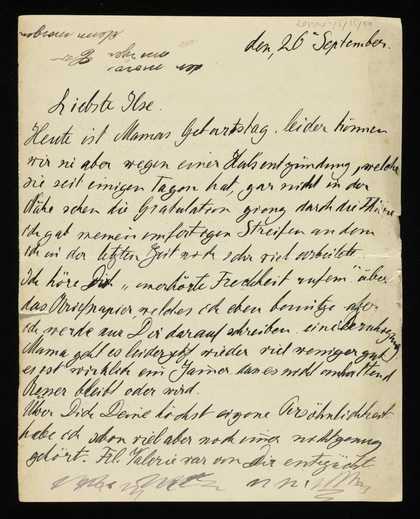 den, 26 September.
Liebste Ilse.
Heute ist Mamas Geburtstag, leider können
wir sie aber wegen einer Halsentzündung, welche
sie seit einigen Tagen hat, gar nicht in der
Nähe sehen die Gratulation gieng durch die Türe
ich gab meinen Streifen an dem
ich in der letzten Zeit noch sehr viel arbeitete
Ich höre Dich „unerhörte Frechheit rufen" über
das Briefpapier welches ich eben benütze aber
ich werde nur Dir darauf schreiben.
Mama geht es leider jetzt wieder viel weniger gut
es ist wirklich ein Jammer dass es nicht anhaltend
besser bleibt oder wird.
Über Dich Deine höchst eigene Persöhnlichkeit
habe ich schon viel aber noch immer nicht genug
gehört. Frl. Valerie war von Dir entzückt